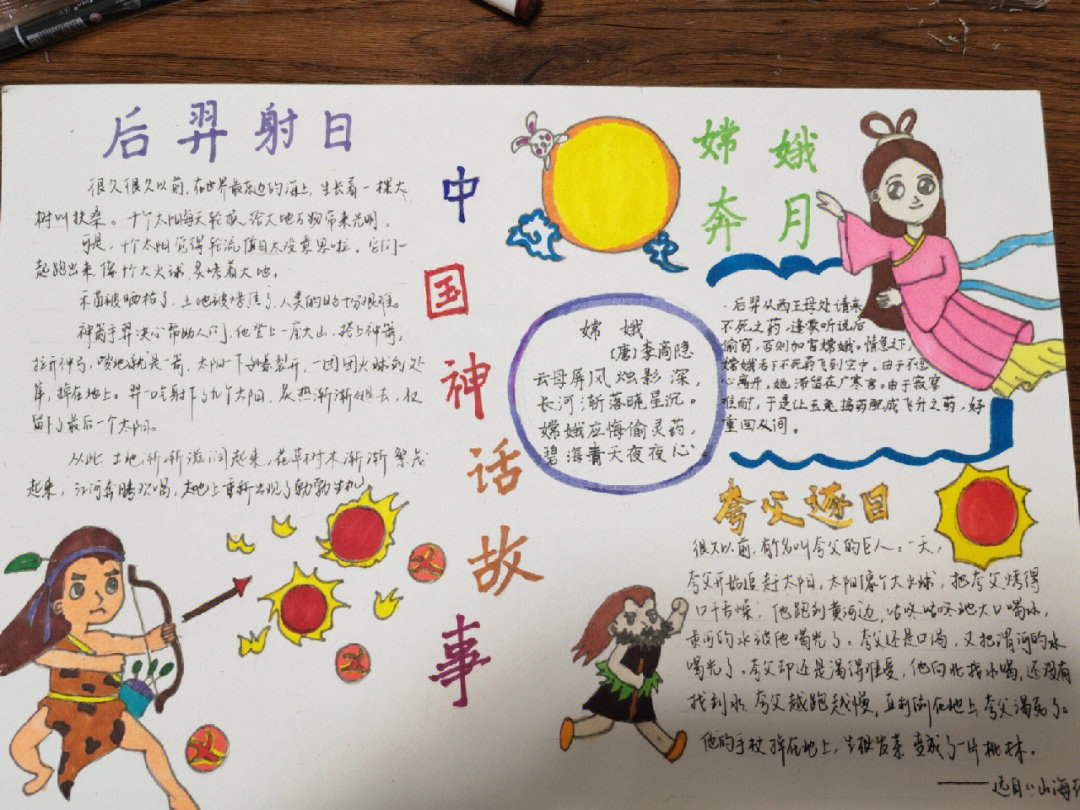 后羿射日
很久很久以前,在世界最东边的海上,生长着一棵大
树叫扶桑。十个太阳每天轮敌,给大地万物带来光明。
可是,十个太阳觉得轮流值日太没意思啦。它们一
起跑出来像十个大火球炙烤着大地。
禾苗被晒枯了,土地被烤焦了,人类的日子十分艰难。
神箭手羿决心帮助人们,他登上一座大山,搭上神箭,
拉开神弓,嗖地就是一箭,太阳一下爆裂开,一团团火球到处
窜,掉在地上。羿一口气射下了九个太阳,炎热渐渐退去,仅
留下了最后一个太阳。
从此土地渐渐滋润起来,花草树木渐渐繁茂
起来,江河奔腾欢唱,大地上重新出现了勃勃生机。
中国神话故事
嫦娥
奔月
嫦娥
(唐)李商隐
云母屏风烛影深,
长河渐落晓星沉。
嫦娥应悔偷灵药,
碧海青天夜夜心。
后羿从西王母处请来
不死之药,逢蒙听说后
偷窃,否则加害嫦娥。情急之下,
嫦娥吞下不死药飞到空中。由于不忍
心离开,她滞留在广寒宫。由于寂寞
难耐,于是让玉兔捣药配成飞升之药,好
重回人间。
夸父逐日
很久以前,有个名叫夸父的巨人。一天,
夸父开始追赶太阳,太阳像个大火球,把夸父烤得
口干舌燥;他跑到黄河边,咕咚咕咚地大口喝水,
黄河的水被他喝光了。夸父还是口渴,又把渭河的水
喝光了。夸父却还是渴得难受,他向北找水喝,还没有
找到水,夸父越跑越慢,直到倒在地上,夸父渴死了。
他的手杖掉在地上,生根发素变成了一片桃林。
——选自《山海